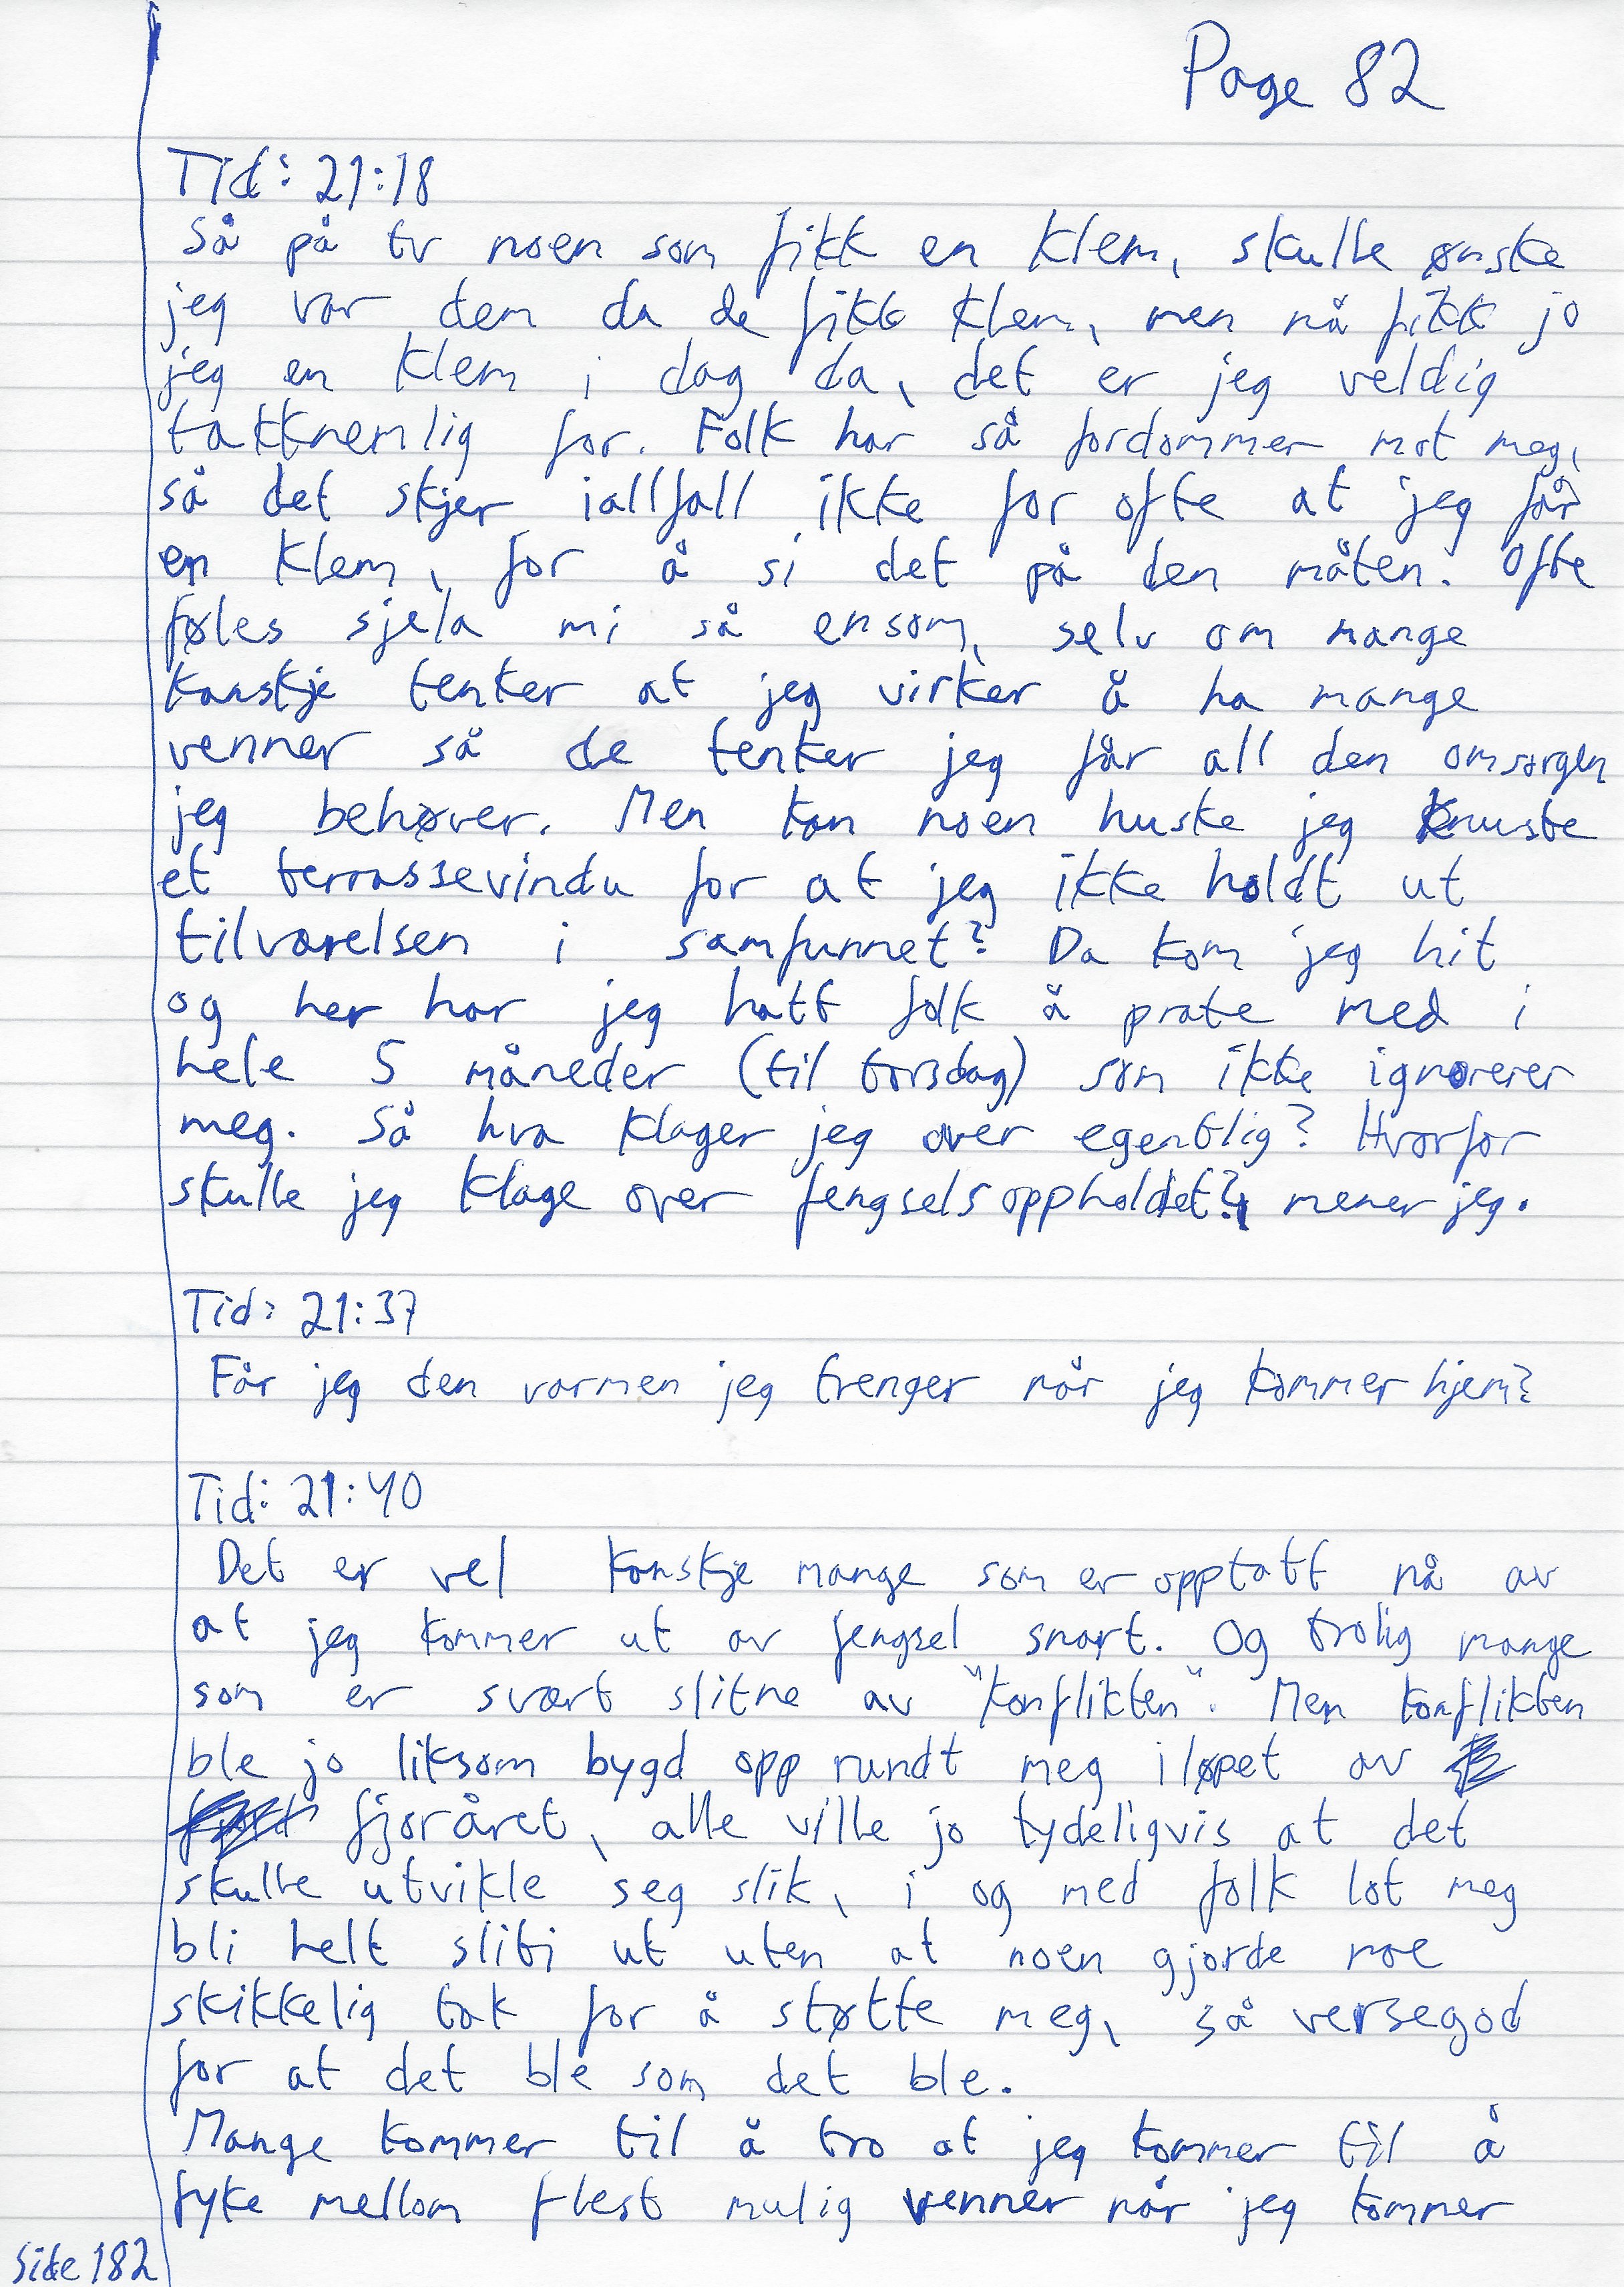 Page 82
Tid: 21:18
Så på tv noen som fikk en klem, skulle ønske
jeg var dem da de fikk klem, men nå fikk jo
jeg en klem i dag da, det er jeg veldig
takknemlig for. Folk har så fordommer mot meg,
så det skjer iallfall ikke for ofte at jeg får
en klem, for å si det på den måten. Ofte
føles sjela mi så ensom, selv om mange
kanskje tenker at jeg virker å ha mange
venner så de tenker jeg får all den omsorgen
jeg behøver. Men kan noen huske jeg knuste
et terrassevindu for at jeg ikke holdt ut
tilværelsen i samfunnet? Da kom jeg hit
og her har jeg hatt folk å prate med i
hele 5 måneder (til torsdag) som ikke ignorerer
meg. Så hva klager jeg over egentlig? Hvorfor
skulle jeg klage over fengselsoppholdet?, mener jeg.
Tid: 21:37
Får jeg den varmen jeg trenger når jeg kommer hjem?
Tid: 21:40
Det er vel kanskje mange som er opptatt nå av
at jeg kommer ut av fengsel snart. Og trolig mange
som er svært slitne av "konflikten". Men konflikten
ble jo liksom bygd opp rundt meg iløpet av
fjoråret, alle ville jo tydeligvis at det
skulle utvikle seg slik, i og med folk lot meg
bli helt sliti ut uten at noen gjorde noe
skikkelig tak for å støtte meg, så versegod
for at det ble som det ble.
Mange kommer til å tro at jeg kommer til å
fyke mellom flest mulig venner når jeg kommer
Side 182